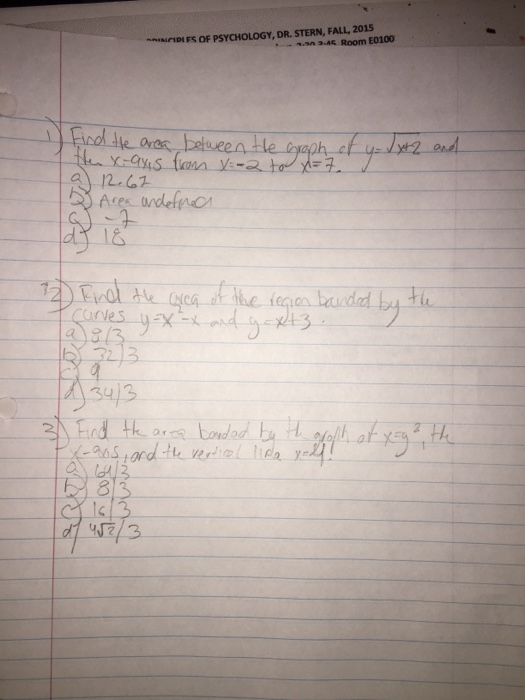 PRINCIPLES OF PSYCHOLOGY, DR. STERN, FALL, 2015
Room E0100
1) Find the area between the graph of y=√x+2 and
the x-axis from x=-2 to x=7.
a) 12.67
b) Area undefined
c) -7
d) 18
2) Find the area of the region bounded by the
curves y=x²-x and y=x+3.
a) 8/3
b) 32/3
c) 9
d) 34/3
3) Find the area bonded by the graph of x=y², the
x-axis, and the vertical line x=4!
a) 64/3
b) 8/3
c) 16/3
d) 4√2/3